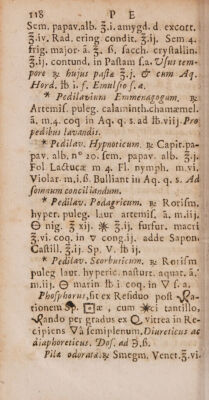 118 P E
Sem. papav.alb. ℥.i. amygd. d. excort.
℥.iv. Rad. ering condit. ℥.ij. Sem 4.
frig. major. ā. ℥. ß. sacch. crystallin.
℥.ij. contund. in Pastam s.a. Usus tem-
pore ℞ hujus pastæ ℥.j. & cum Aq.
Hord. ℔ i. f. Emulsio s. a.
* Pedilavium Emmenagogum. ℞
Artemis. puleg. calaminth.chamæmel.
ā. m.4. coq in Aq. q. s. ad ℔.viij. Pro
pedibus lavandis.
* Pedilav. Hypnoticum. ℞ Capit.pa-
pav. alb. nº 20. sem. papav. alb. ℥.j.
Fol Lactucæ m 4. Fl. nymph. m.vi.
Violar m.i, ß. Bulliant in Aq. q. s. Ad
somnum conciliandum.
* Pedilav. Podagricum. ℞ Rorism
hyper. puleg. laur artemis. ā. m.iij.
nig. ℥ xij. ℥.ij. furfur. macri
℥.vi. coq. in v cong.ij. adde Sapon.
Castill. ℥.ij. Sp. V. ℔ ij.
* Pedilav. Scorbuticum. ℞ Rorism
puleg laur. hyperic. nasturt. aquat. ā.
m.iij. marin ℔ i. coq. in ▽ s. a.
Phosphorus, fit ex Residuo post
tionem Sp. æ, cum ci tantillo,
ando per gradus ex vitrea in Re-
cipiens ▽â semiplenum, Diureticus ac
diaphoreticus. Dos. ad ℈.ß.
Pila odorata. ℞ Smegm. Venet.℥.vi.